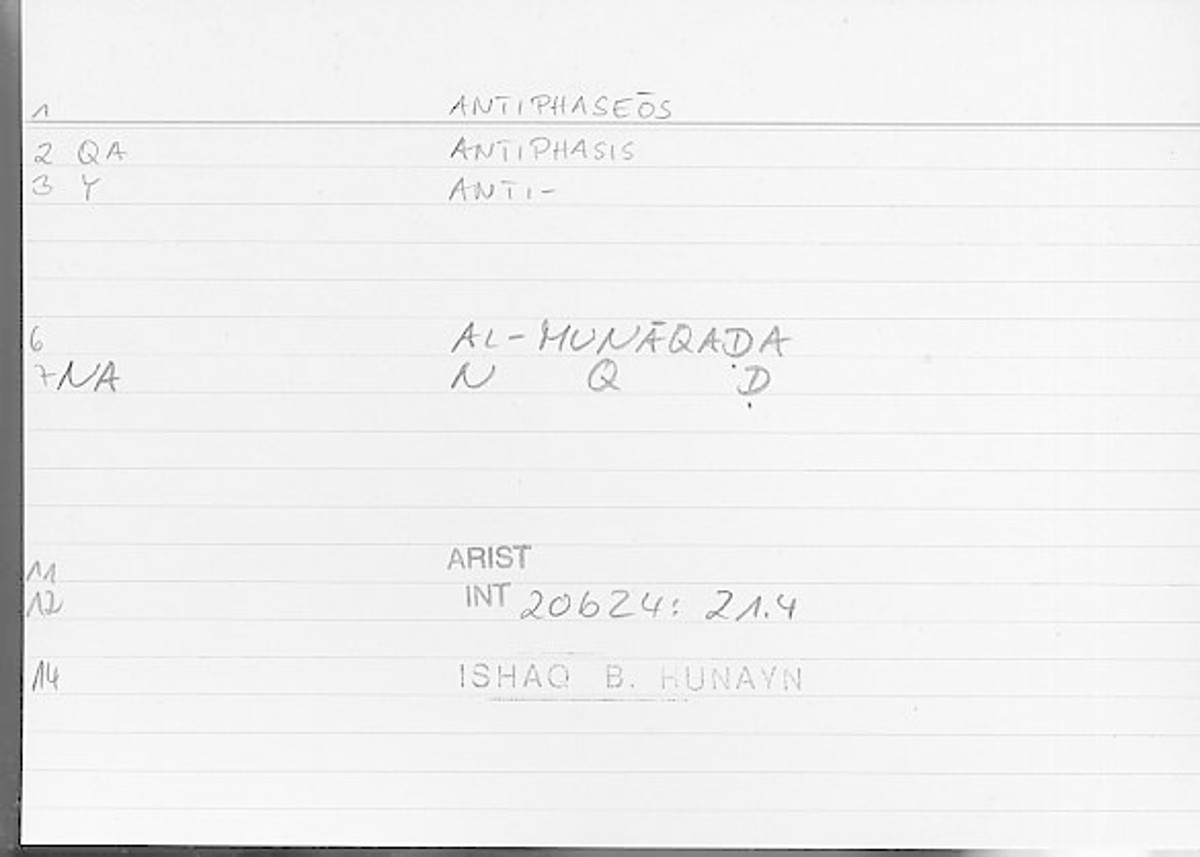 1 ANTIPHASEŌS
2 QA ANTIPHASIS
3 Y ANTI-
6 AL-MUNĀQAḌA
7 NA N Q Ḍ
11 ARIST
12 INT 20b24: 21.4
14 ISHAQ B. HUNAYN